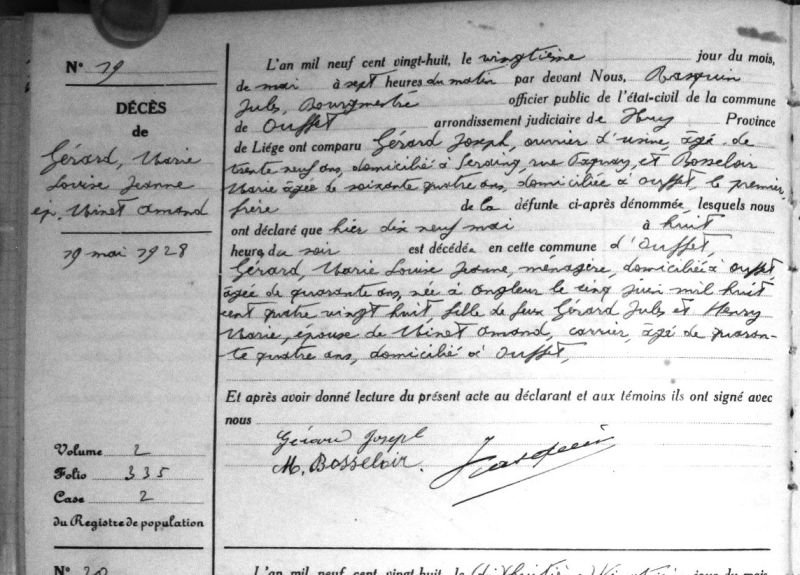 N° 19
DÉCÈS
de
Gérard, Marie
Louise Jeanne
ép. Minet Amand
19 mai 1928
Volume 2
Folio 335
Case 2
du Registre de population
L'an mil neuf cent vingt-huit, le vingtième jour du mois,
de mai à sept heures du matin par devant Nous, Rasquin
Jules, Bourgmestre officier public de l'état-civil de la commune
de Ouffet arrondissement judiciaire de Huy Province
de Liége ont comparu Gérard Joseph, ouvrier d'usine, âgé de
trente neuf ans, domicilié à Seraing, rue et Bosseloir
Marie âgée de soixante quatre ans, domiciliée à Ouffet, le premier,
frère de la défunte ci-après dénommée lesquels nous
ont déclaré que hier dix neuf mai à huit
heure du soir est décédée en cette commune d'Ouffet,
Gérard, Marie Louise Jeanne, ménagère, domiciliée à Ouffet
âgée de quarante ans, née à Angleur le cinq juin mil huit
cent quatre vingt huit fille de feux Gérard Jules et Henry
Marie, épouse de Minet Amand, carrier, âgé de quaran-
te quatre ans, domicilié à Ouffet,
Et après avoir donné lecture du présent acte au déclarant et aux témoins ils ont signé avec
nous
Gérard Joseph
M. Bosseloir.
J Rasquin
N° 20
L'an mil neuf cent vingt-huit, le jour du mois